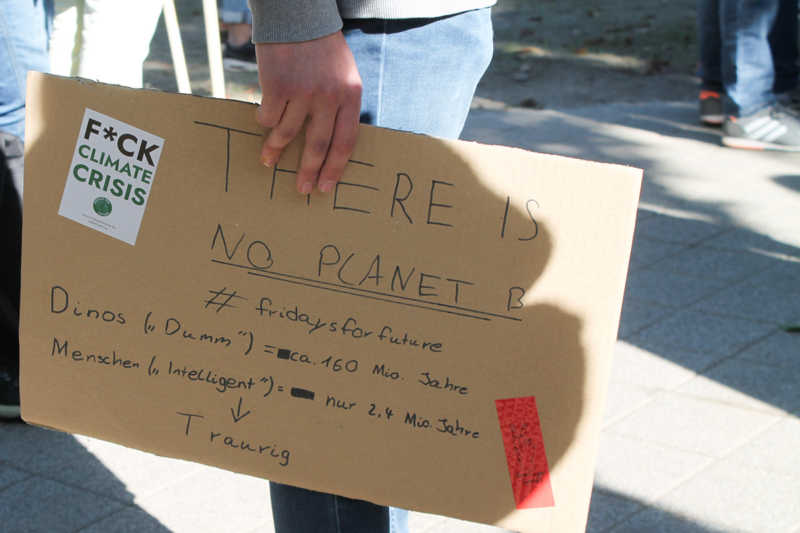 F*CK
CLIMATE
CRISIS
THERE IS
NO PLANET B
# fridaysforfuture
Dinos („Dumm“) = ca. 160 Mio. Jahre
Menschen („Intelligent“) = nur 2,4 Mio. Jahre
↓
Traurig